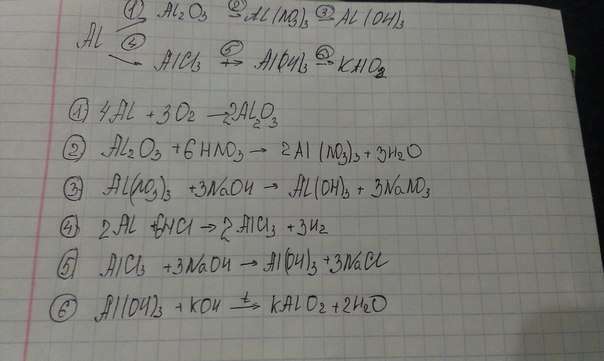 ① Al₂O₃ ② → Al(NO₃)₃ ③ → Al(OH)₃
Al
④ → AlCl₃ ⑤ → Al(OH)₃ ⑥ → KAlO₂
① 4Al + 3O₂ → 2Al₂O₃
② Al₂O₃ + 6HNO₃ → 2Al(NO₃)₃ + 3H₂O
③ Al(NO₃)₃ + 3NaOH → Al(OH)₃ + 3NaNO₃
④ 2Al + 6HCl → 2AlCl₃ + 3H₂
⑤ AlCl₃ + 3NaOH → Al(OH)₃ + 3NaCl
⑥ Al(OH)₃ + KOH t→ KAlO₂ + 2H₂O